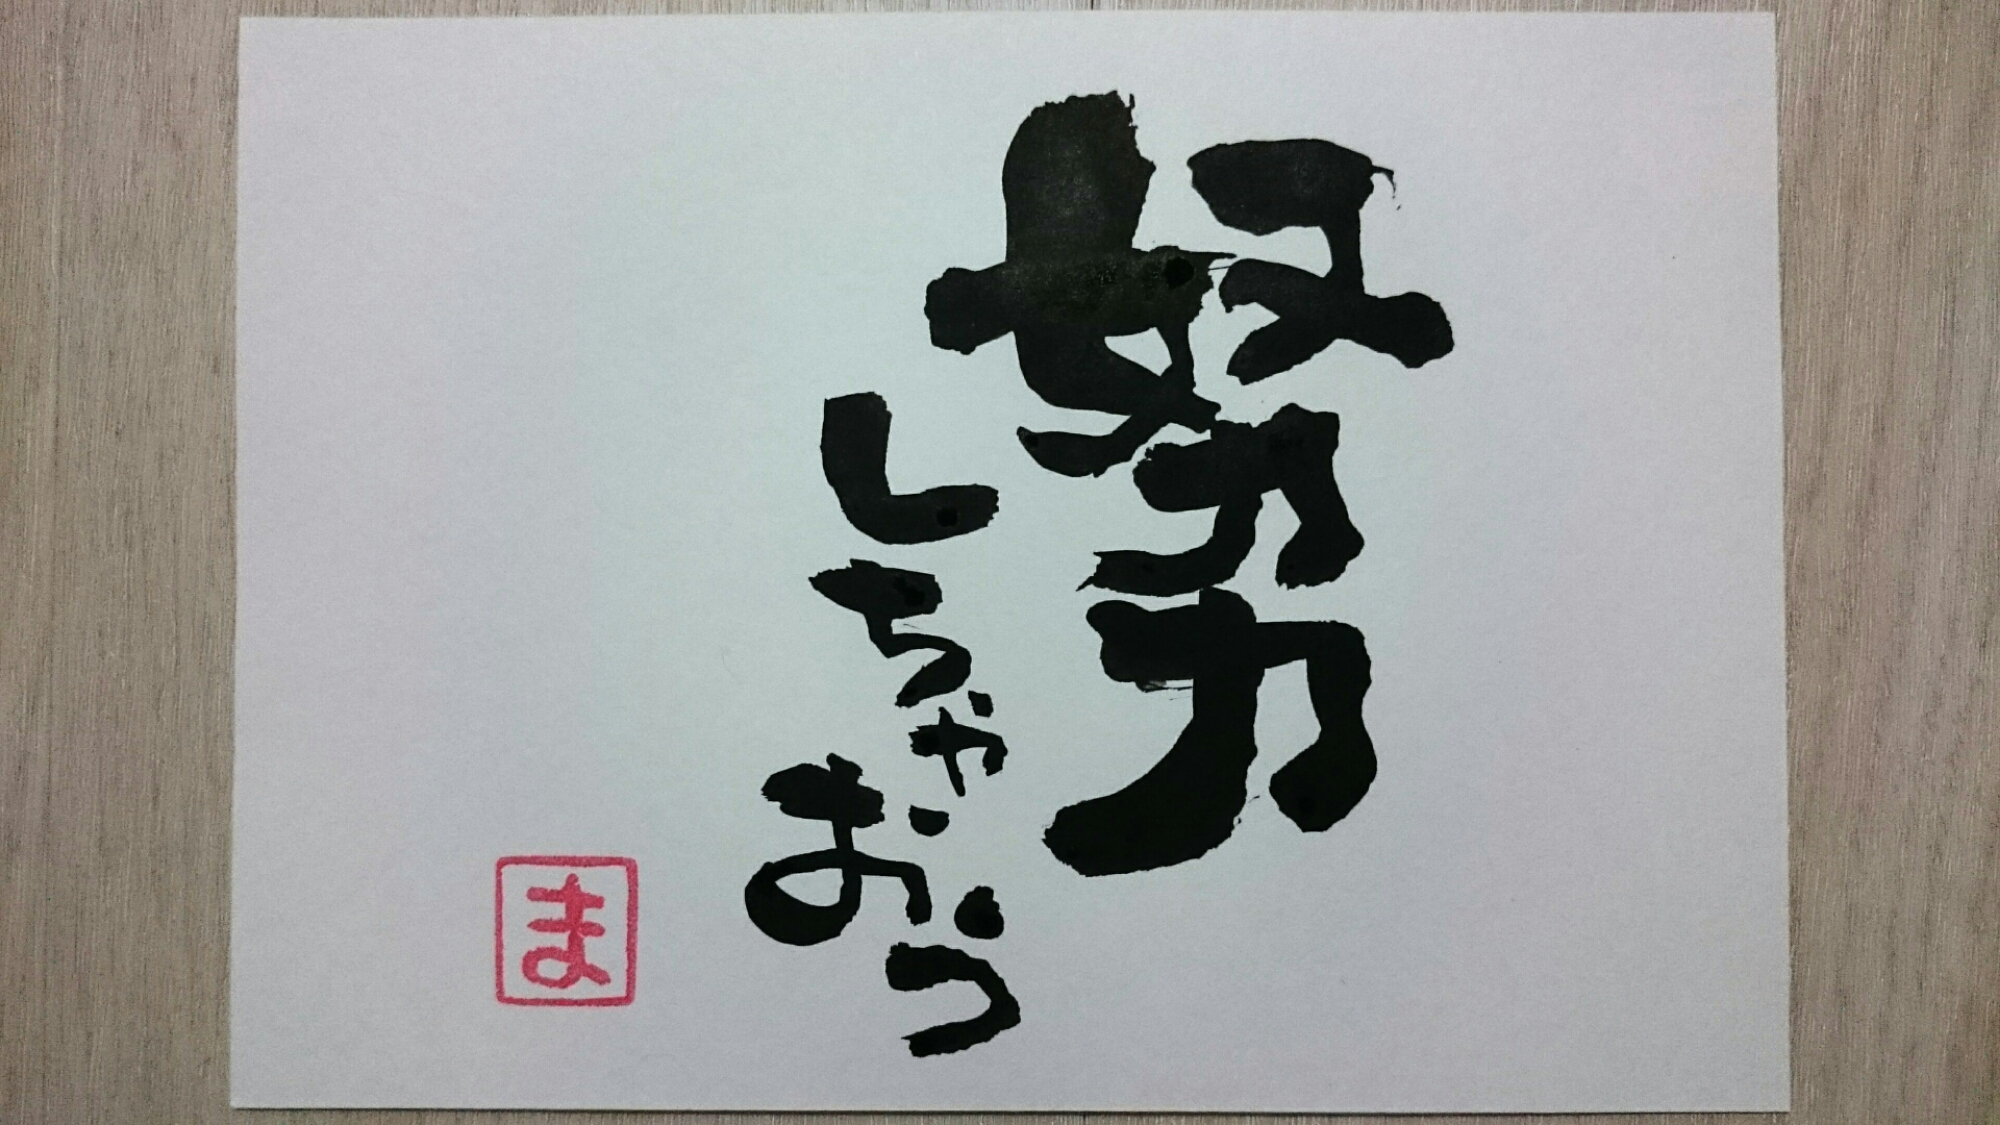 努力
しちゃおう
ま